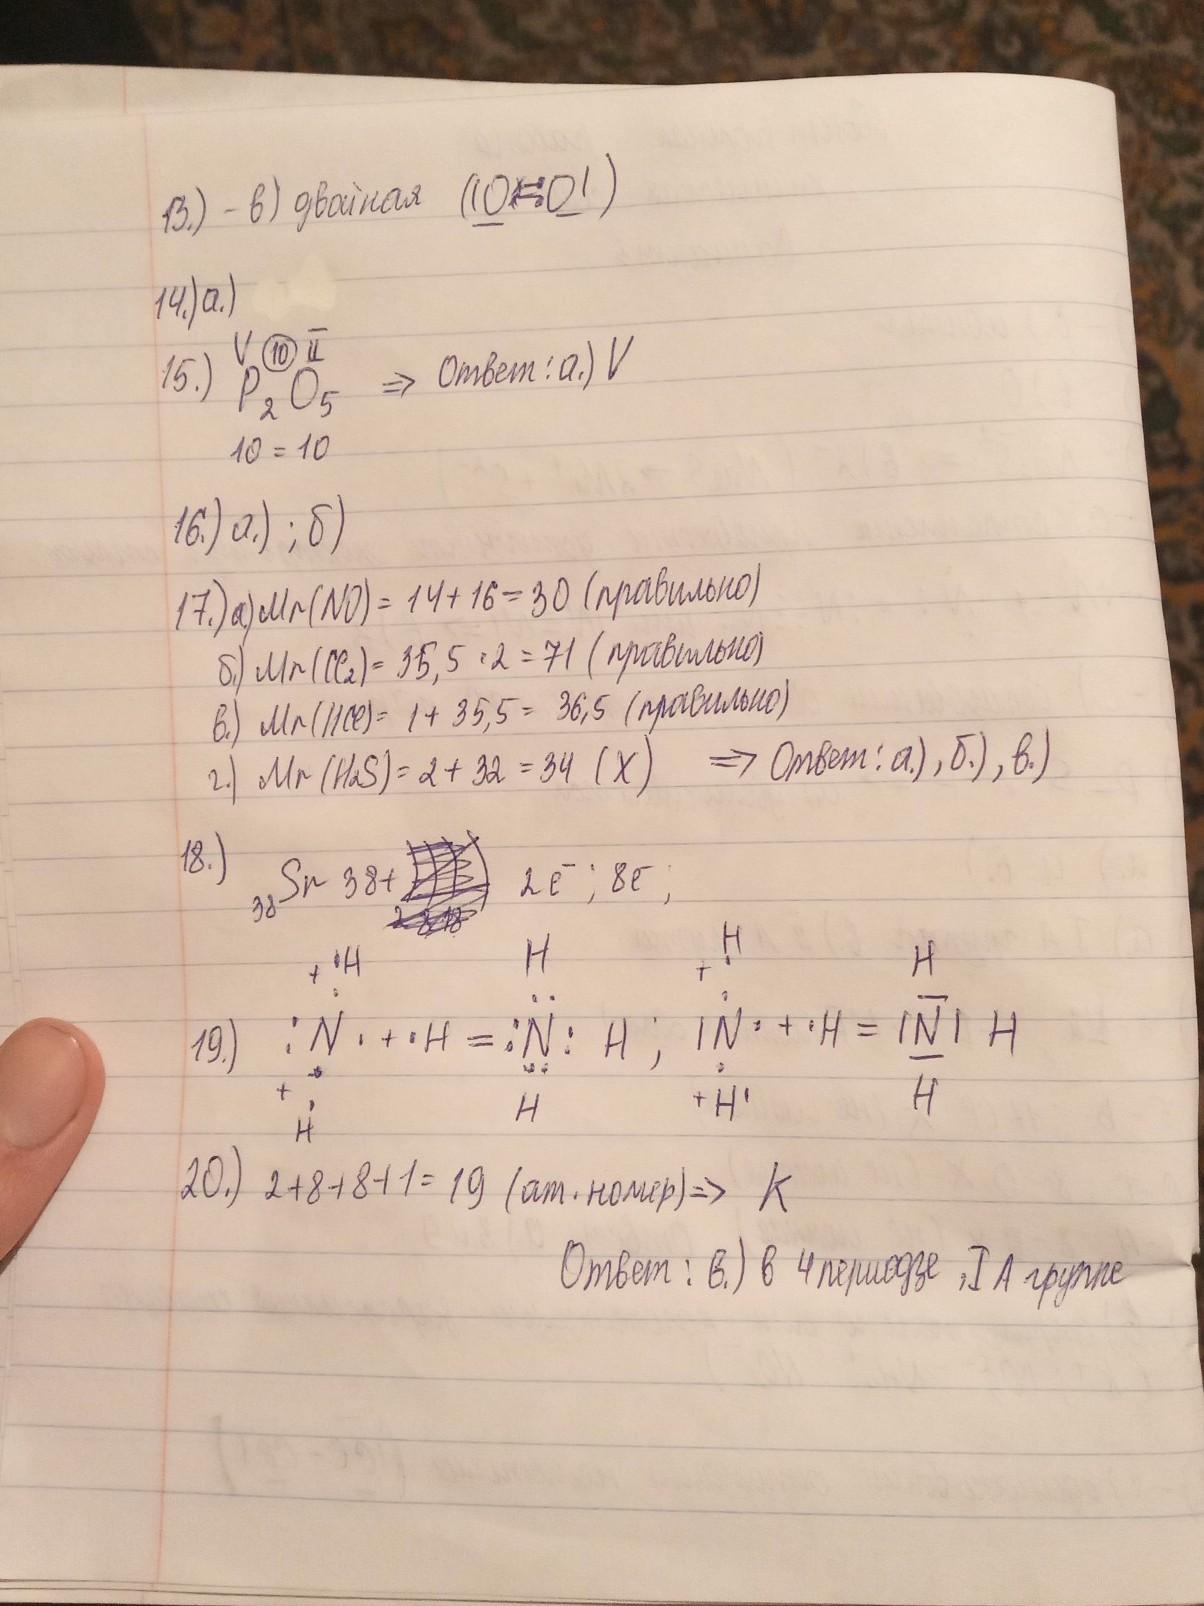 13.) - в) двойная (|O=O|)
14.) а.)
V (10) II
15.) P2O5 => Ответ: а.) V
10 = 10
16.) а.) ; б)
17.) а) Mr(NO) = 14 + 16 = 30 (правильно)
б.) Mr(Cl2) = 35,5 · 2 = 71 (правильно)
в.) Mr(HCl) = 1 + 35,5 = 36,5 (правильно)
г.) Mr(H2S) = 2 + 32 = 34 (X) => Ответ: а.), б.), в.)
18.) 38Sr 38+ 2e⁻; 8e⁻;
+ ·H H + H H
19.) :N· + ·H = :N: H ; |N· + ·H = |N| H
+ H H + H· H
20.) 2+8+8+1 = 19 (ат. номер) => K
Ответ: в.) в 4 периодзе, I А группе